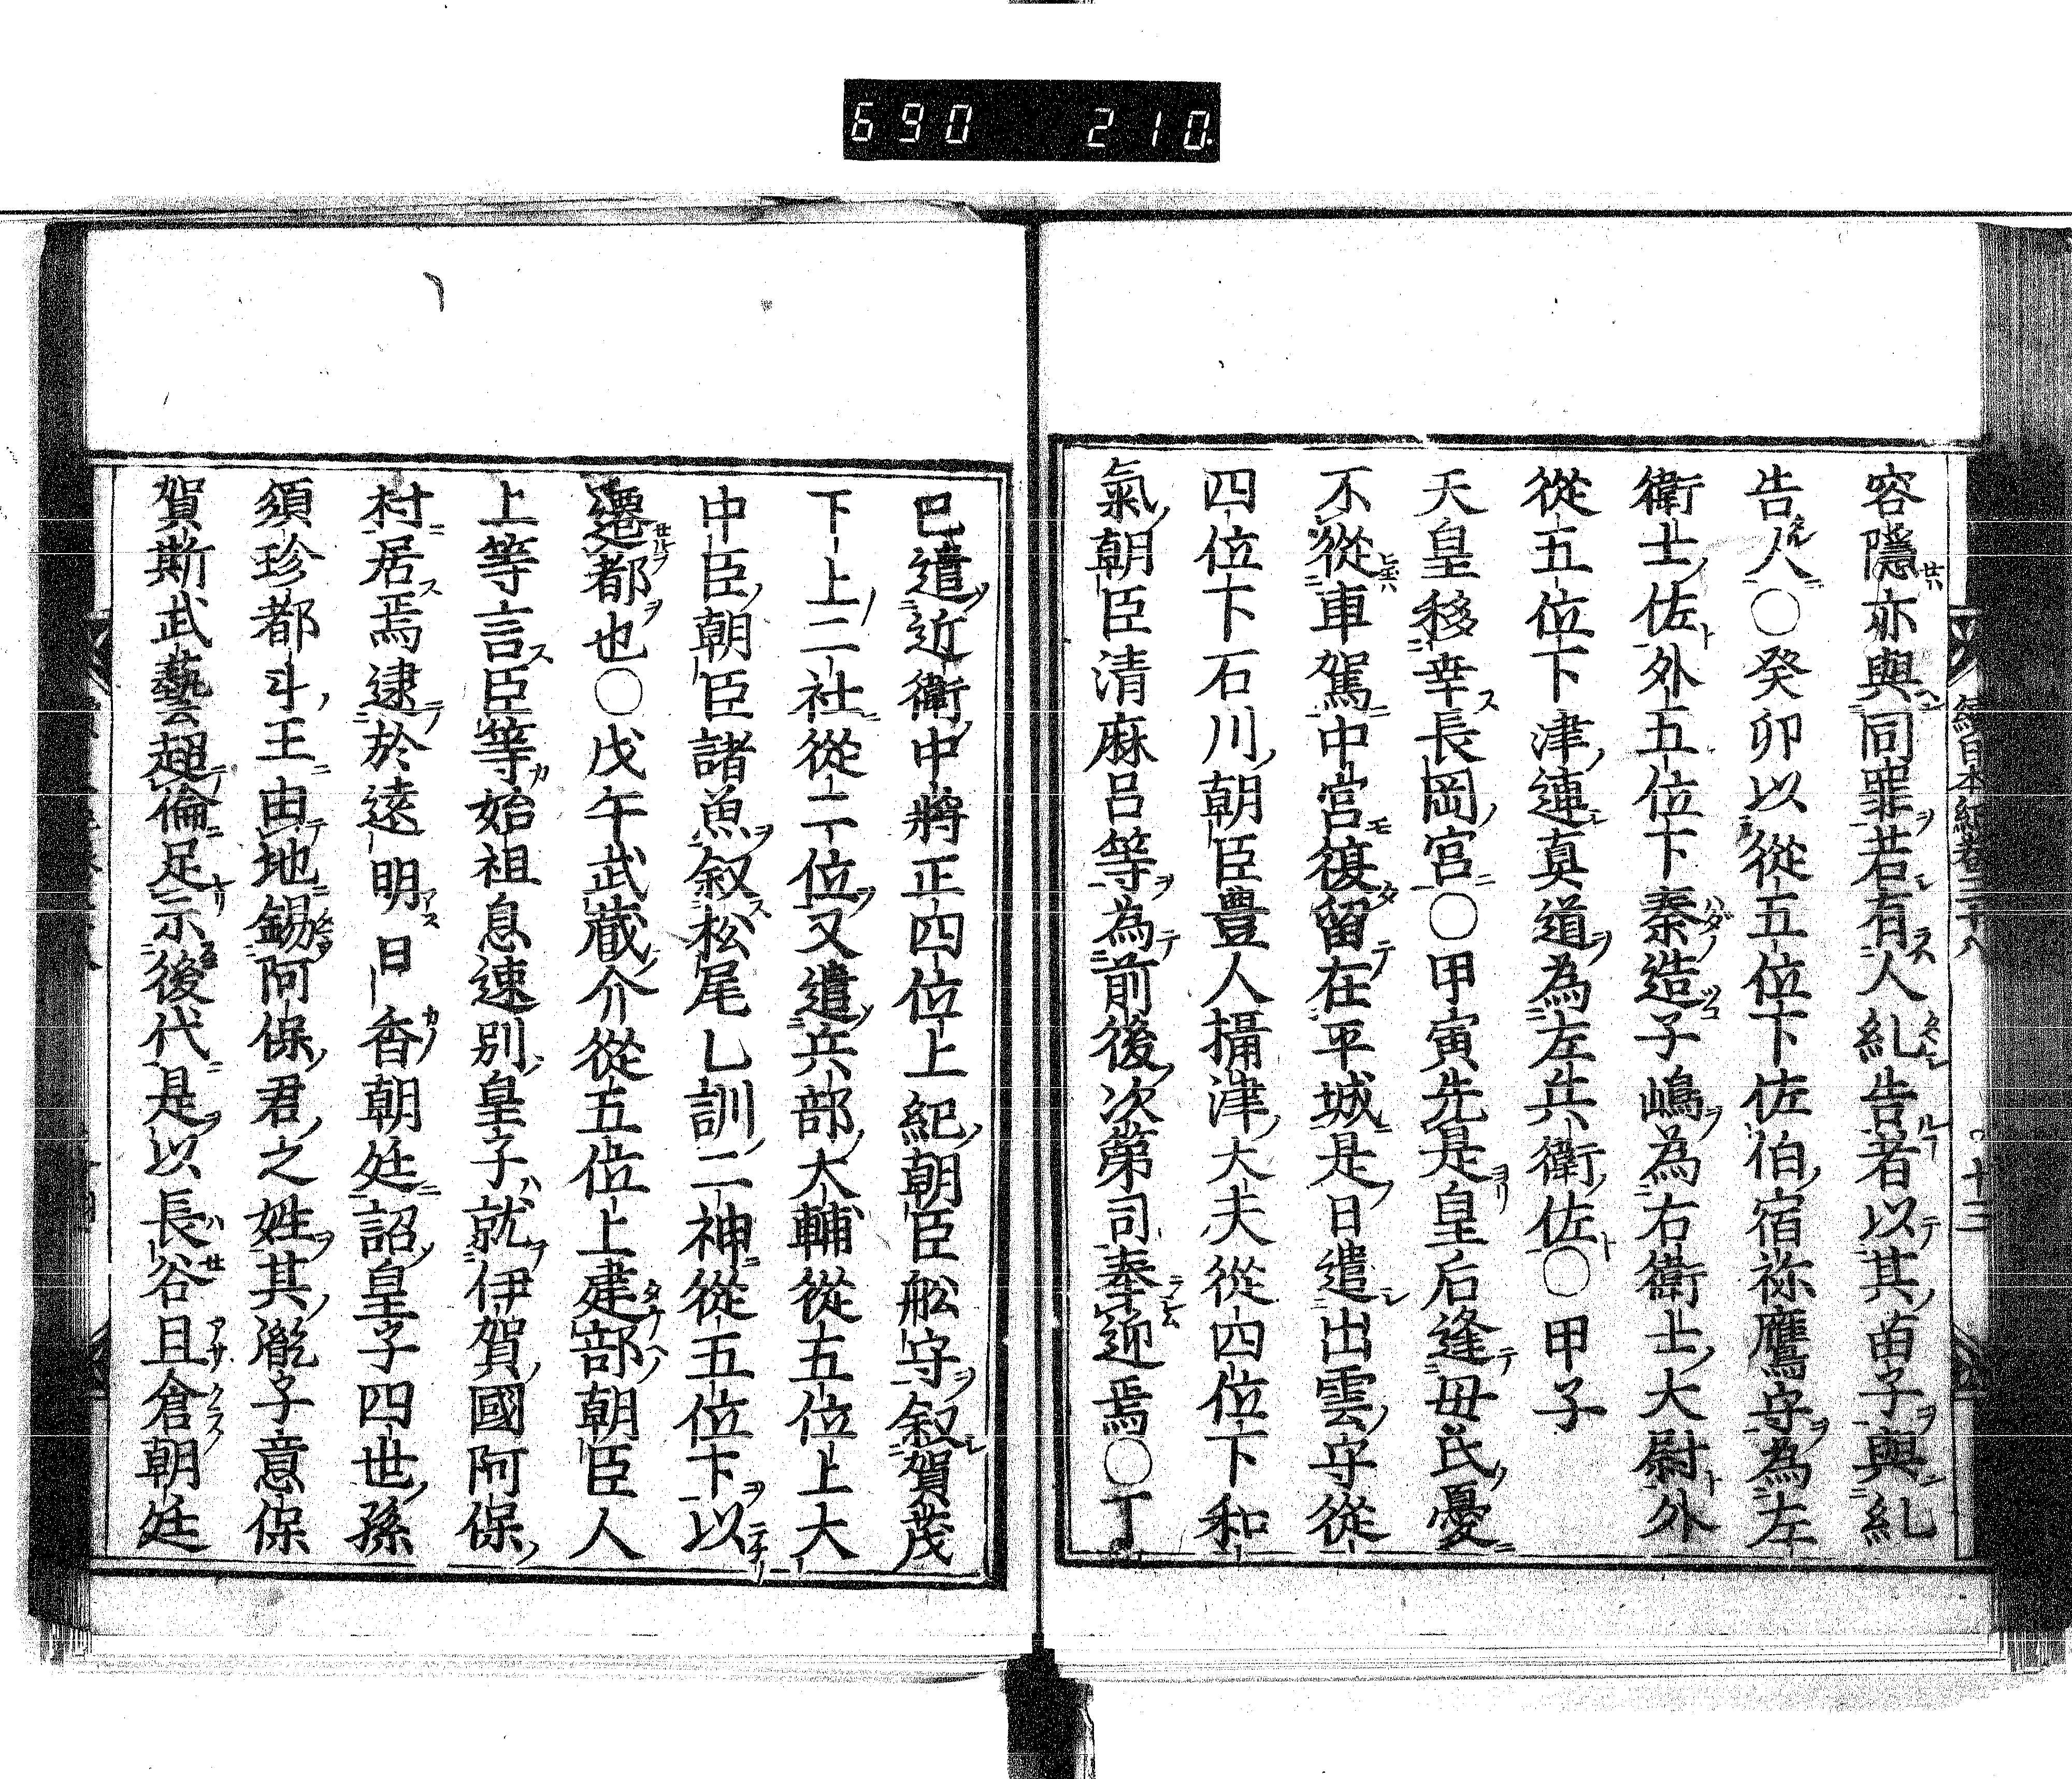 690 210
續日本紀卷三十八 十三
容隱亦與同罪若有人糺告者以其苗子與糺
告人○癸卯以從五位下佐伯宿祢鷹守為左
衛士佐外五位下秦造子嶋為右衛士大尉外
從五位下津連真道為左兵衛佐○甲子
天皇移幸長岡宮○甲寅先是皇后逢母氏憂
不從車駕中宮復留在平城是日遣出雲守從
四位下石川朝臣豊人攝津大夫從四位下和
氣朝臣清麻呂等為前後次第司奉迎焉○丁
巳遣近衛中將正四位上紀朝臣舩守叙賀茂
下上二社從二位又遣兵部大輔從五位上大
中臣朝臣諸魚叙松尾乚訓二神從五位下以
遷都也○戊午武蔵介從五位上建部朝臣人
上等言臣等始祖息速別皇子就伊賀國阿保
村居焉逮於遠明日香朝廷詔皇子四世孫
須珍都斗王由地錫阿保君之姓其胤子意保
賀斯武藝超倫足示後代是以長谷旦倉朝廷